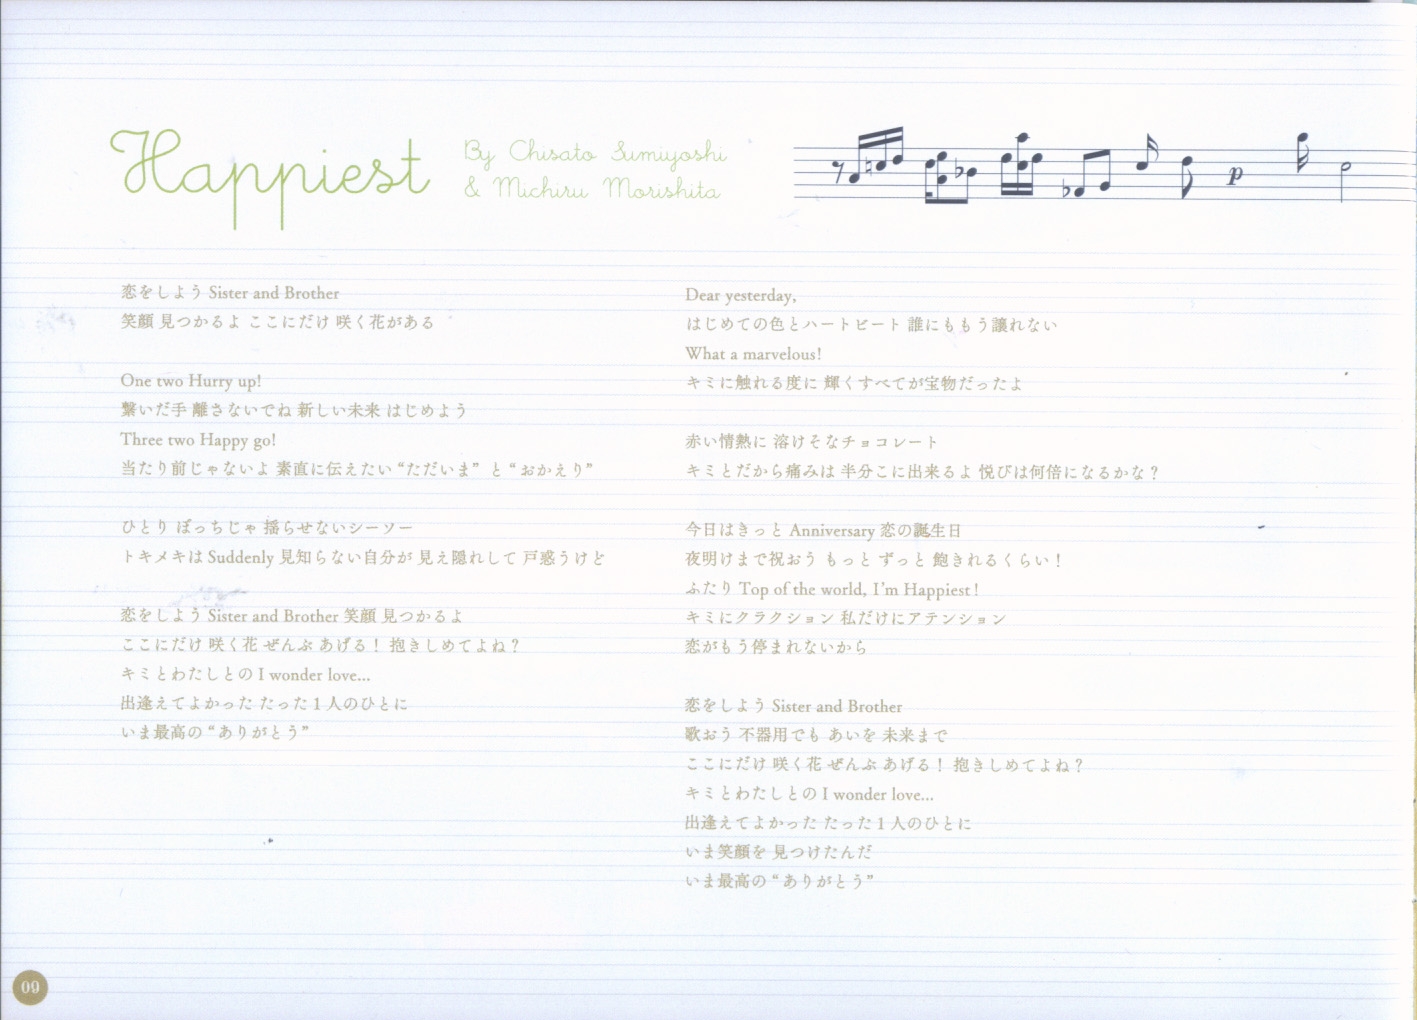 Happiest
By Chisato Sumiyoshi
& Michiru Morishita
p
恋をしよう Sister and Brother
笑顔 見つかるよ ここにだけ 咲く花がある
One two Hurry up!
繋いだ手 離さないでね 新しい未来 はじめよう
Three two Happy go!
当たり前じゃないよ 素直に伝えたい “ただいま” と “おかえり”
ひとり ぼっちじゃ 揺らせないシーソー
トキメキは Suddenly 見知らない自分が 見え隠れして 戸惑うけど
恋をしよう Sister and Brother 笑顔 見つかるよ
ここにだけ 咲く花 ぜんぶ あげる！ 抱きしめてよね？
キミとわたしとの I wonder love...
出逢えてよかった たった１人のひとに
いま最高の “ありがとう”
Dear yesterday,
はじめての色とハートビート 誰にももう譲れない
What a marvelous!
キミに触れる度に 輝くすべてが宝物だったよ
赤い情熱に 溶けそなチョコレート
キミとだから痛みは 半分こに出来るよ 悦びは何倍になるかな？
今日はきっと Anniversary 恋の誕生日
夜明けまで祝おう もっと ずっと 飽きれるくらい！
ふたり Top of the world, I’m Happiest！
キミにクラクション 私だけにアテンション
恋がもう停まれないから
恋をしよう Sister and Brother
歌おう 不器用でも あいを 未来まで
ここにだけ 咲く花 ぜんぶ あげる！ 抱きしめてよね？
キミとわたしとの I wonder love...
出逢えてよかった たった１人のひとに
いま笑顔を 見つけたんだ
いま最高の “ありがとう”
09